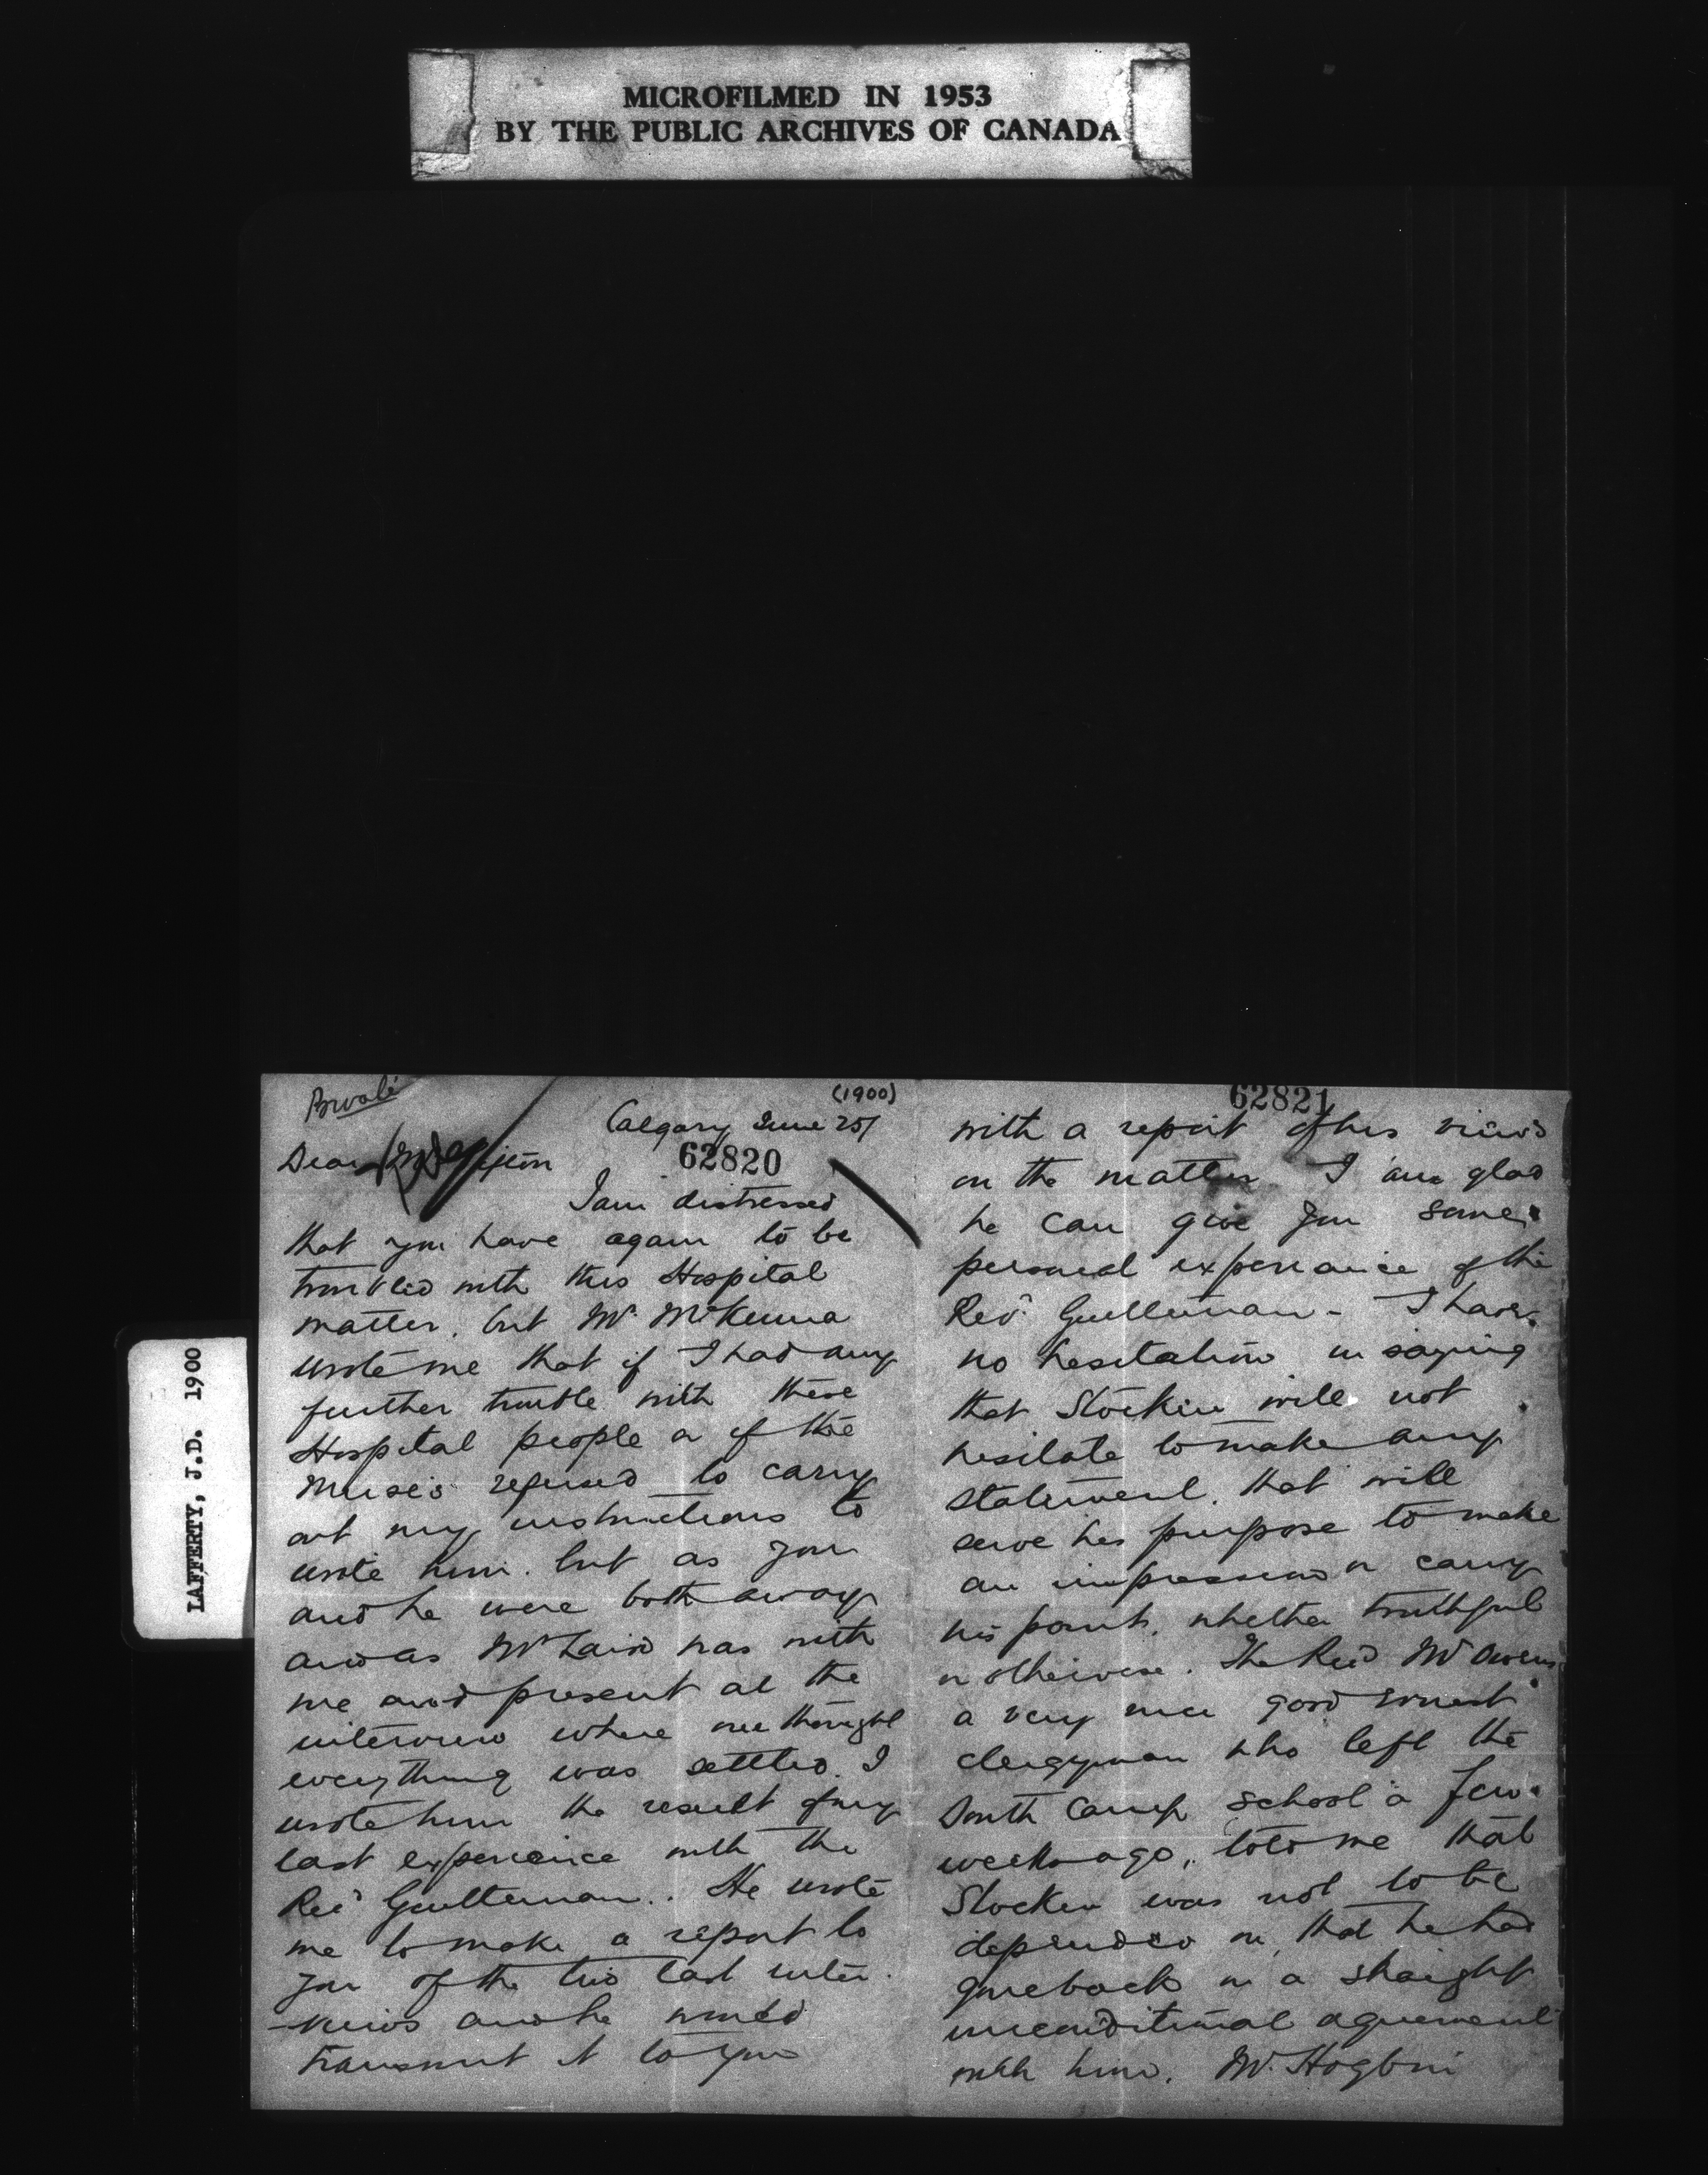 MICROFILMED IN 1953
BY THE PUBLIC ARCHIVES OF CANADA
LAFFERTY, J.D. 1900
Private
(1900)
Calgary June 25/
62820
Dear
I am distressed
that you have again to be
troubled with this Hospital
matter, but Mr. McKenna
wrote me that if I had any
further trouble with these
Hospital people or if the
Nurses refused to carry
out my instructions to
write him. but as you
and he were both away
and as Mr Laird was with
me and present at the
interview where we thought
everything was settled. I
wrote him the result of my
last experience with the
Revd . He wrote
me to make a report to
you of the two last inter
-views and he would
transmit it to you
62821
with a report of his views
on the matter I am glad
he can give you some
personal experience of the
Revd - I have
no hesitation in saying
that Stocken will not
hesitate to make any
statement, that will
serve his purpose to make
an impression or carry
his point, whether truthful
or otherwise. The Revd Mr Owens
a very nice good earnest
clergyman who left the
South Camp school a few
weeks ago, told me that
Stocken was not to be
depended on, that he had
gone back on a straight
unconditional agreement
with him. Mr. Hogbin